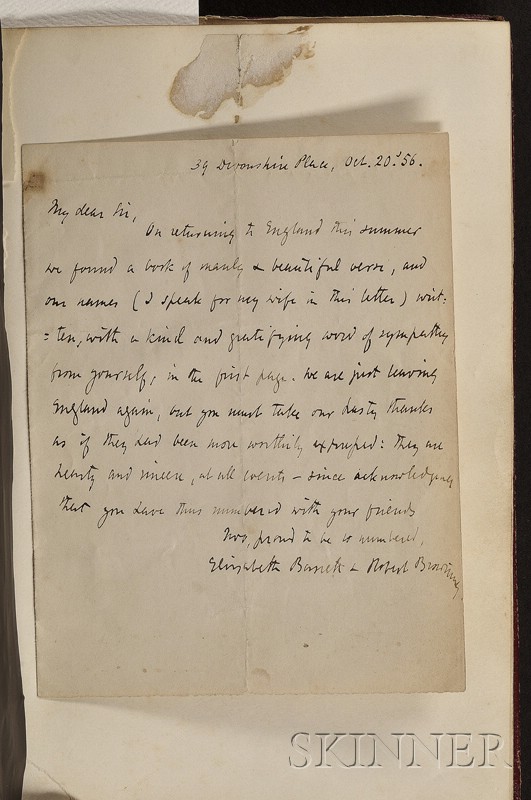 39 Devonshire Place, Oct. 20.' 56.
My dear Sir,
On returning to England this summer
we found a book of manly & beautiful verse, and
our names (I speak for my wife in this letter) writ:
=ten, with a kind and gratifying word of sympathy
from yourself, in the first page. We are just leaving
England again, but you must take our hasty thanks
as if they had been more worthily expressed: they are
hearty and sincere, at all events – since acknowledging
that you have thus numbered with your friends
Two, proud to be so numbered,
Elizabeth Barrett & Robert Browning
SKINNER